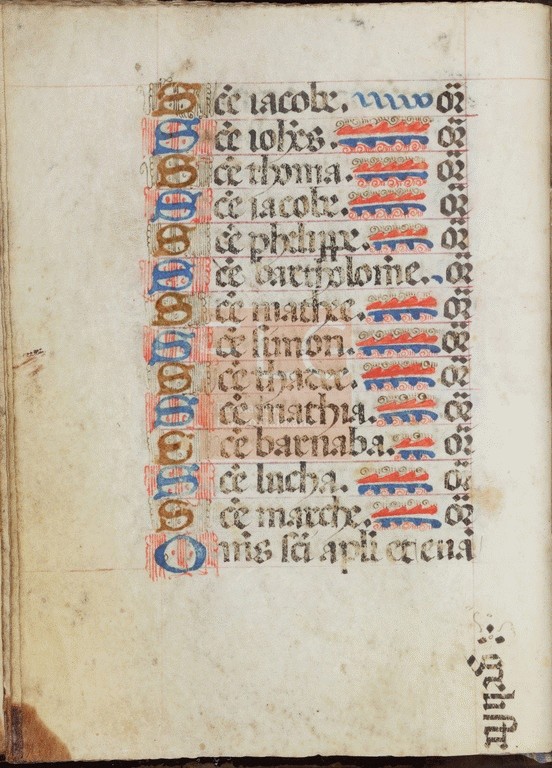 Sc̄e iacobe. or̄
Sc̄e ioh̄es. or̄
Sc̄e thoma. or̄
Sc̄e iacobe. or̄
Sc̄e philippe. or̄
Sc̄e bartholom̄e. or̄
Sc̄e mathee. or̄
Sc̄e simon. or̄
Sc̄e thadee. or̄
Sc̄e mathia. or̄
Sc̄e barnaba. or̄
Sc̄e lucha. or̄
Sc̄e marche. or̄
Om̄s sc̄i apl̄i et eua